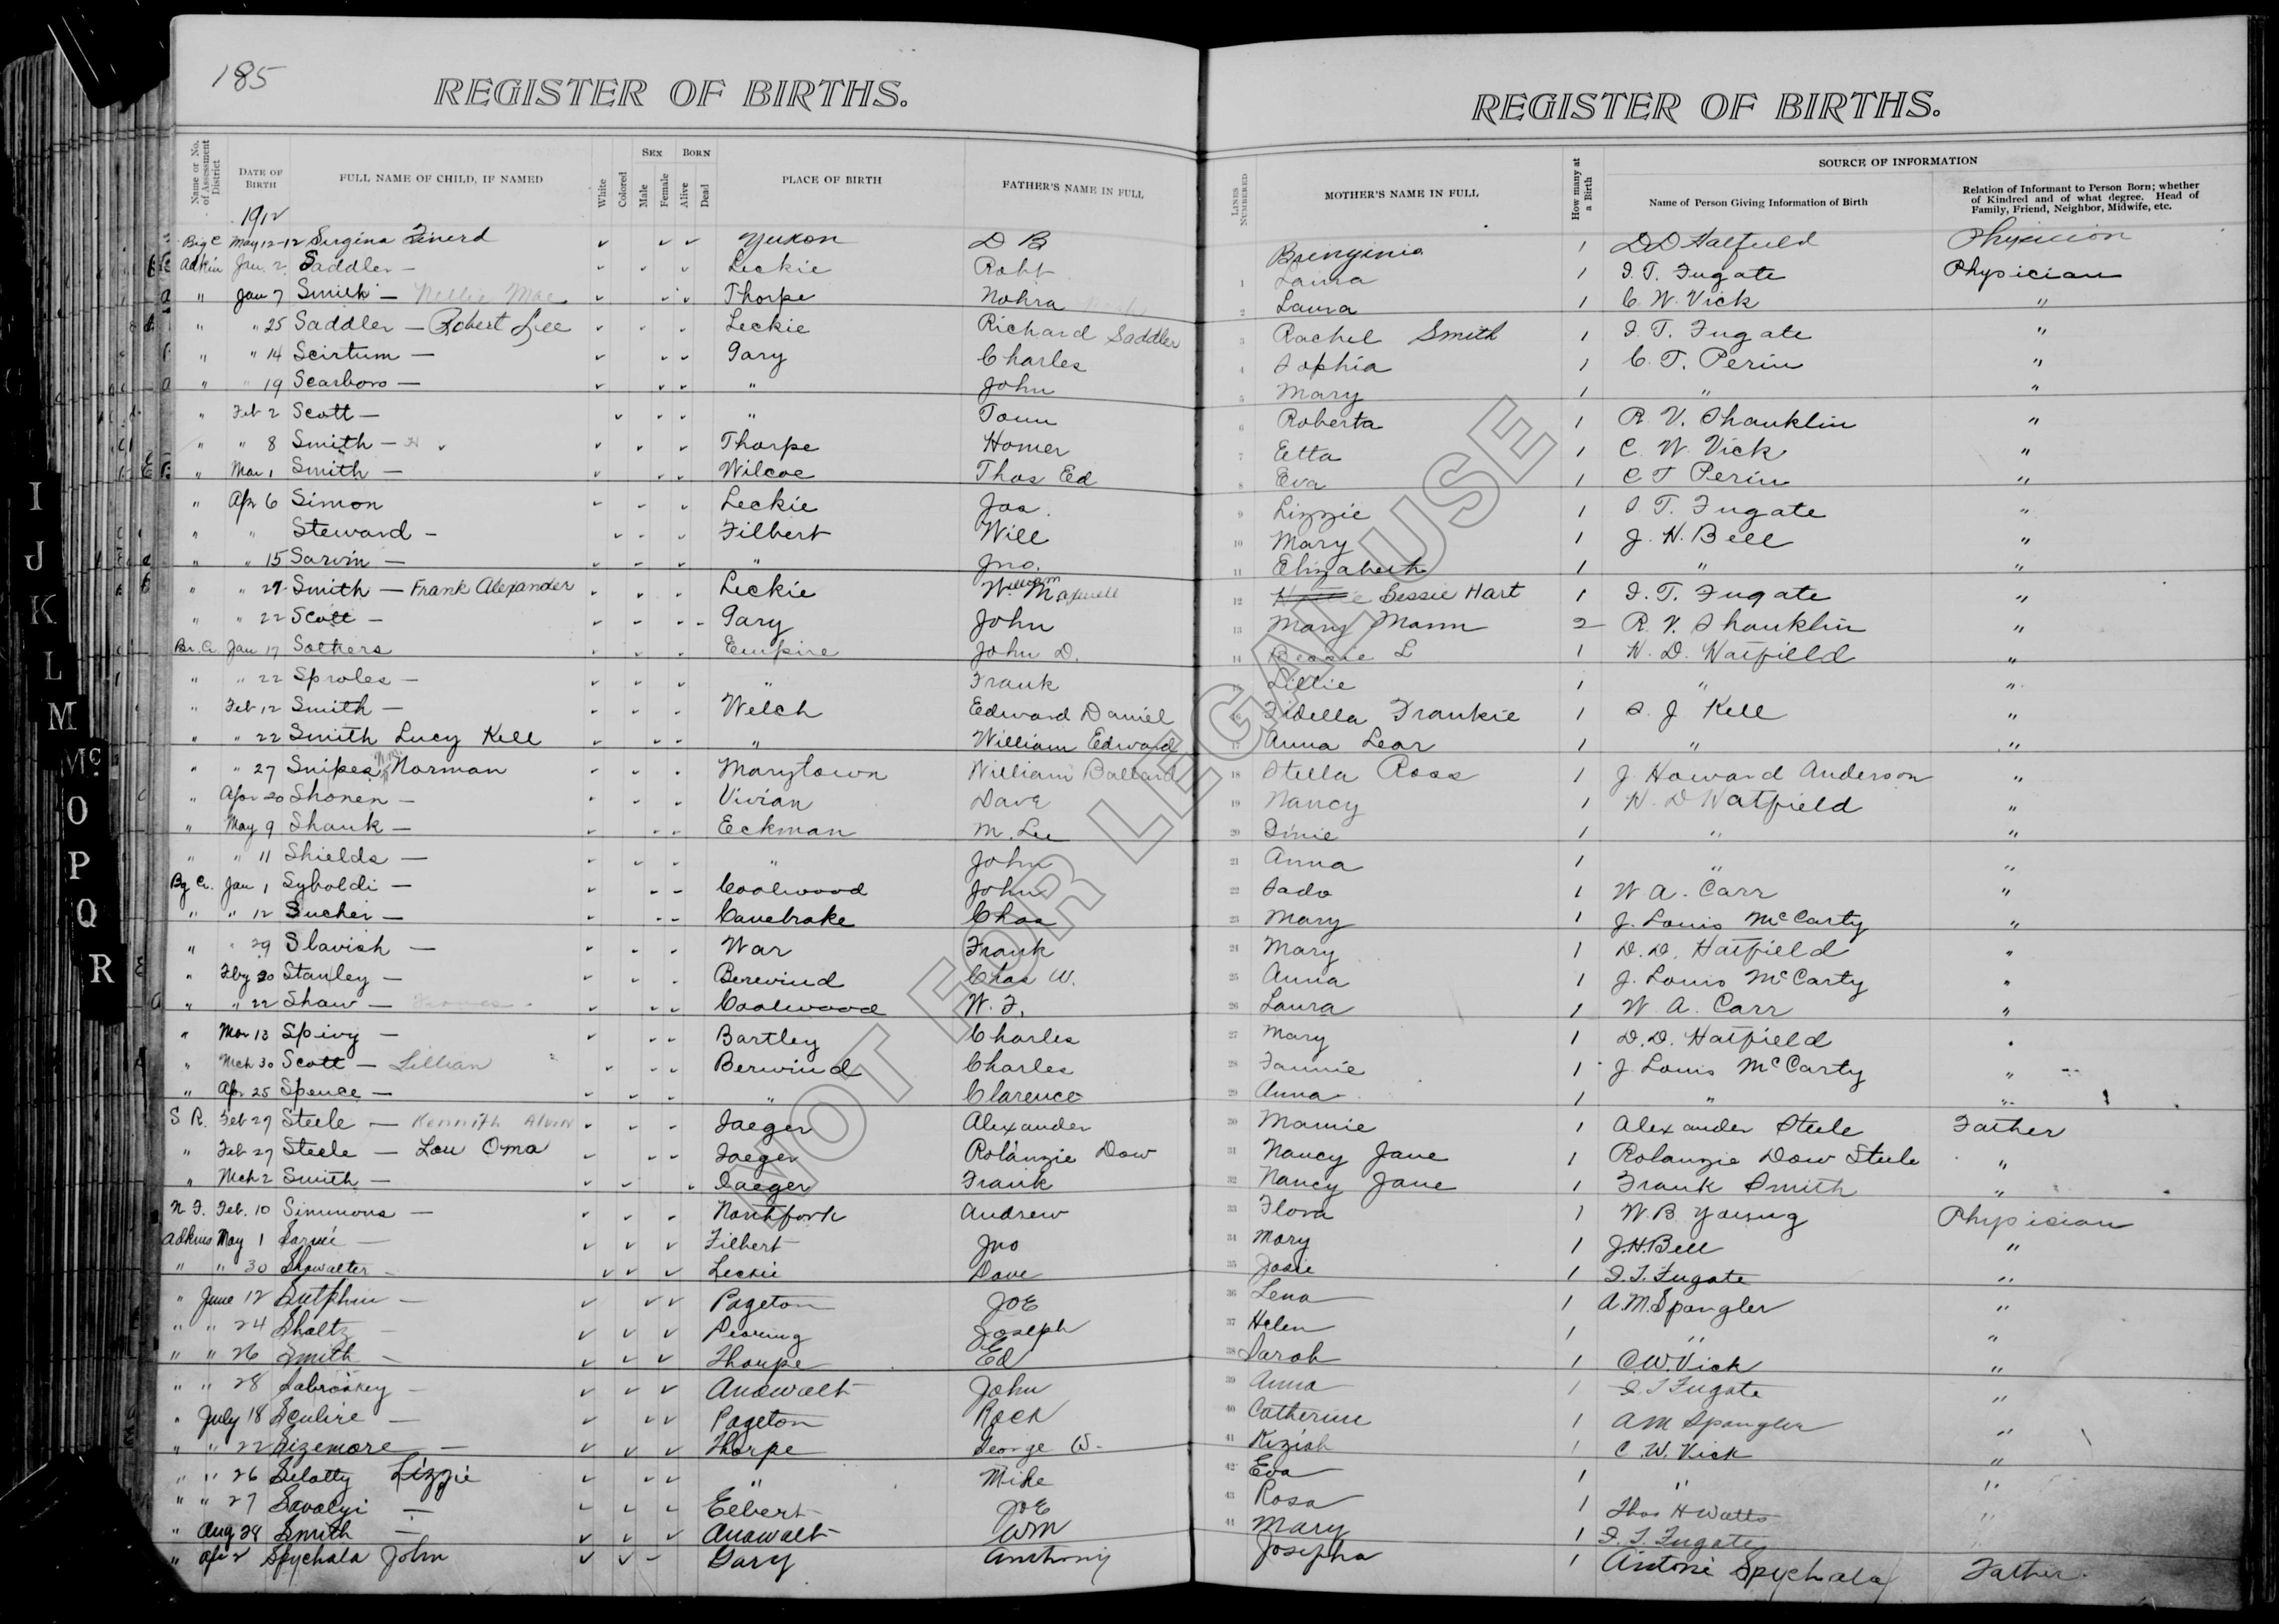 185
REGISTER OF BIRTHS.
REGISTER OF BIRTHS.
Name or No. of Assessment District
DATE OF BIRTH
FULL NAME OF CHILD, IF NAMED
White
Colored
SEX
Male
Female
BORN
Alive
Dead
PLACE OF BIRTH
FATHER'S NAME IN FULL
LINES NUMBERED
MOTHER'S NAME IN FULL
How many at a Birth
SOURCE OF INFORMATION
Name of Person Giving Information of Birth
Relation of Informant to Person Born; whether of Kindred and of what degree. Head of Family, Friend, Neighbor, Midwife, etc.
1912
Big C May 12-12 Yukon D B 1 D D Hatfield Physician
Adkin Jan. 2 Saddler — Leckie Robt 1 Laura 1 I. T. Fugate Physician
" Jan 7 Smith — Nellie Mae Thorpe Nohra 2 Laura 1 C. W. Vick "
" " 25 Saddler — Robert Lee Leckie Richard Saddler 3 Rachel Smith 1 I. T. Fugate "
" " 14 Scirtum — Gary Charles 4 Sophia 1 C. T. Perin "
" " 19 Scarboro — " John 5 Mary 1 " "
" Feb 2 Scott — " Tom 6 Roberta 1 R. V. Shanklin "
" " 8 Smith — Thorpe Homer 7 Etta 1 C. W. Vick "
" Mar 1 Smith — Wilcoe Thos Ed 8 Eva 1 C T Perin "
" Apr 6 Simon Leckie Jas. 9 Lizzie 1 I. T. Fugate "
" " Steward - Filbert Will 10 Mary 1 J. H. Bell "
" " 15 Sarvin — " Jno. 11 Elizabeth 1 " "
" " 27 Smith — Frank Alexander Leckie William Maxwell 12 Bessie Hart 1 I. T. Fugate "
" " 22 Scott — Gary John 13 Mary Mann 2 R. V. Shanklin "
Br. Cr. Jan 17 Sothers Empire John D. 14 Bessie L 1 H. D. Hatfield "
" " 22 Sproles — " Frank 15 Lillie 1 " "
" Feb 12 Smith — Welch Edward Daniel 16 Fidella Frankie 1 S. J. Kell "
" " 22 Smith Lucy Kell " William Edward 17 Anna Lear 1 " "
" " 27 Snipes Wm. Norman Marytown William Ballard 18 Stella Ross 1 J. Howard Anderson "
" Apr 20 Shonen — Vivian Dave 19 Nancy 1 H. D Hatfield "
" May 9 Shank — Eckman M. Lee 20 Dinie 1 " "
" " 11 Shields — " John 21 Anna 1 " "
Bg Cr. Jan 1 Syboldi — Coalwood John 22 Sado 1 W A. Carr "
" " 12 Sucher — Canebrake Chas 23 Mary 1 J. Louis McCarty "
" " 29 Slavish — War Frank 24 Mary 1 D. D. Hatfield "
" Fby 20 Stanley — Berwind Chas W. 25 Anna 1 J. Louis McCarty "
" " 22 Shaw — Coalwood W. F. 26 Laura 1 W. A. Carr "
" Mar 13 Spivy — Bartley Charles 27 Mary 1 D. D. Hatfield "
" Mch 30 Scott — Lillian Berwind Charles 28 Fannie 1 J. Louis McCarty "
" Apr 25 Spence — " Clarence 29 Anna 1 " "
S R. Feb 27 Steele — Kennith Alvin Jaeger Alexander 30 Mamie 1 Alexander Steele Father
" Feb 27 Steele — Lou Oma Jaeger Rolanzie Dow 31 Nancy Jane 1 Rolanzie Dow Steele "
" Mch 2 Smith — Iaeger Frank 32 Nancy Jane 1 Frank Smith "
N. F. Feb. 10 Simmons — Northfork Andrew 33 Flora 1 W. B Young Physician
Adkins May 1 Filbert Jno 34 Mary 1 J. H. Bell "
" " 30 Showalter — Leckie Dave 35 Josie 1 I. T. Fugate "
" June 12 Sutphin — Pageton Joe 36 Lena 1 A. M. Spangler "
" " 24 Sholtz — Pearing Joseph 37 Helen 1 " "
" " 26 Smith — Thorpe Ed 38 Sarah 1 C. W. Vick "
" " 28 Sabrosky — Anawalt John 39 Anna 1 I. T Fugate "
" July 18 Sculire — Pageton Rock 40 Catherine 1 A M Spangler "
" " 22 Sizemore — Thorpe George W. 41 Keziah 1 C. W. Vick "
" " 26 Selatty Lizzie " Mike 42 Eva 1 " "
" " 27 Savalyi — Elbert Joe 43 Rosa 1 Thos H Watts "
" Aug 28 Smith — Anawalt Wm 44 Mary 1 I. T. Fugate
" Apr 2 Spychala John Gary Anthony Josepha 1 Antoni Spychala Father
NOT FOR LEGAL USE
I
J
K
L
M
Mc
O
P
Q
R